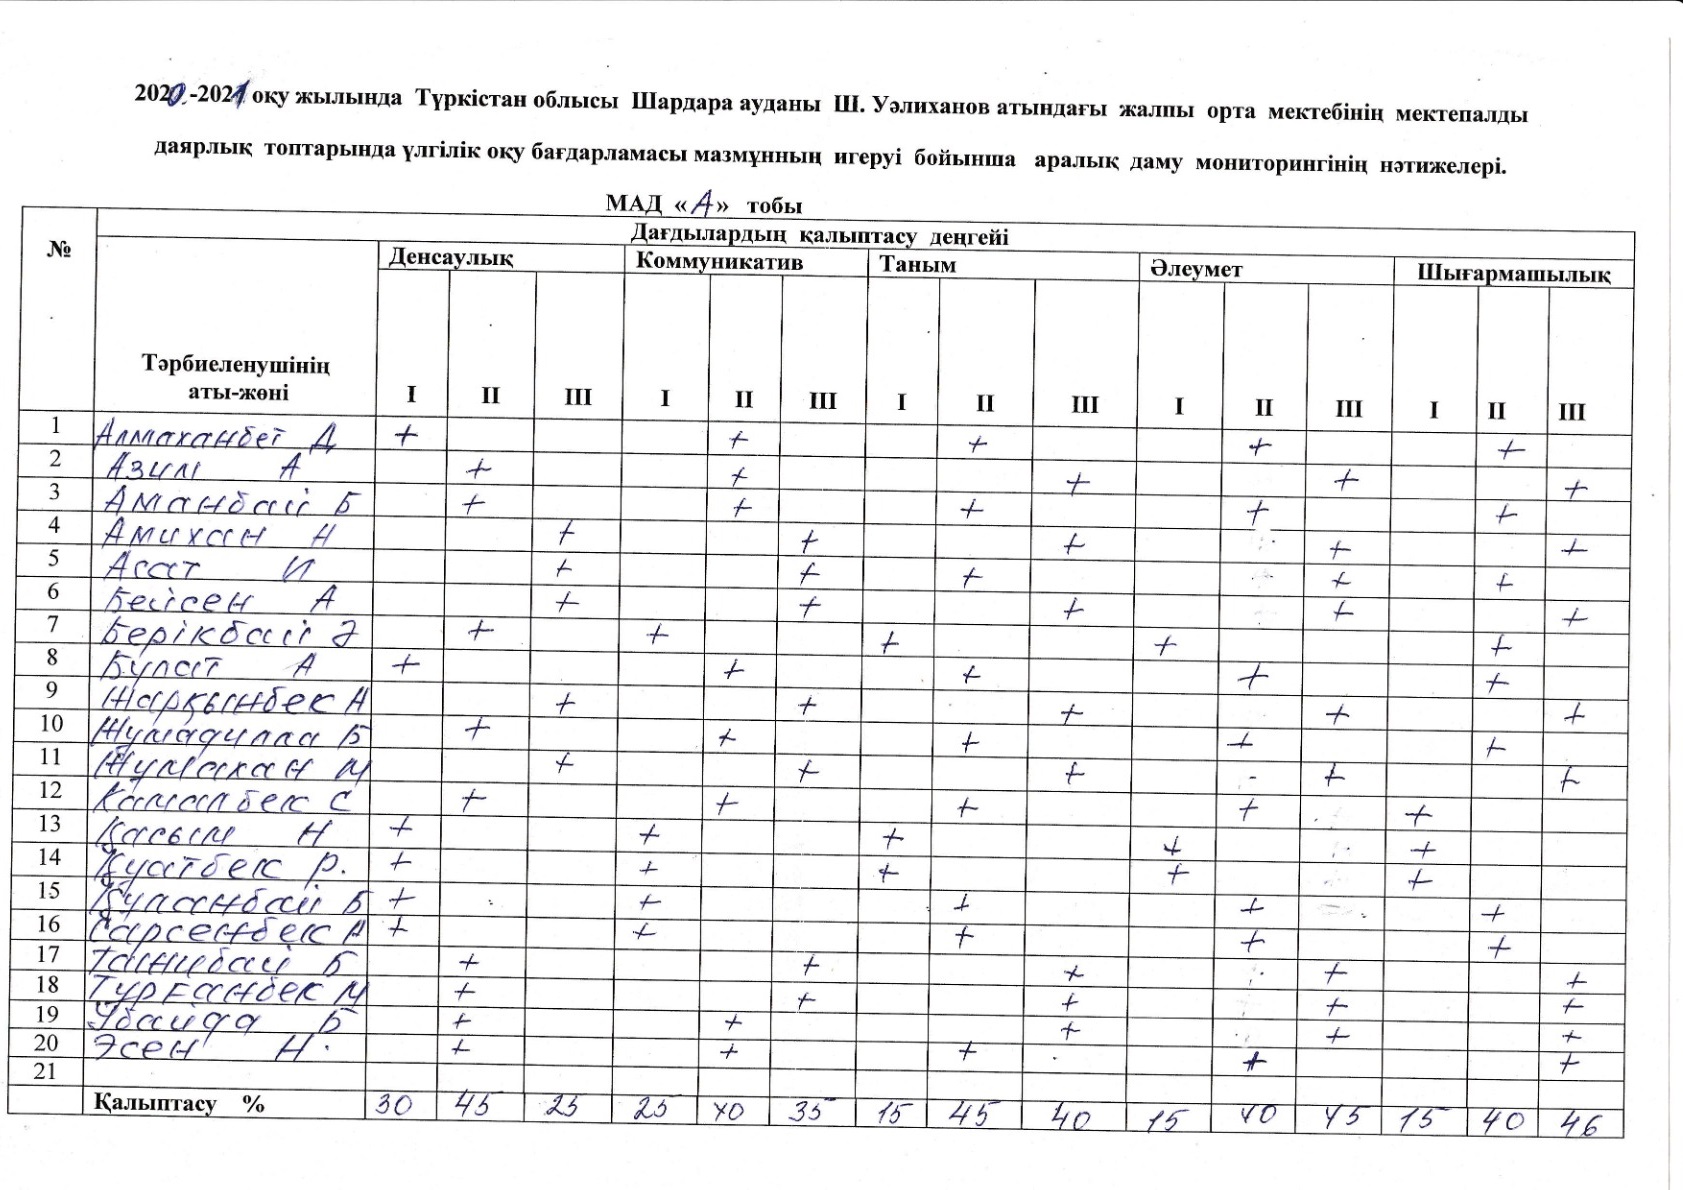 2020-2021 оқу жылында Түркістан облысы Шардара ауданы Ш. Уәлиханов атындағы жалпы орта мектебінің мектепалды
даярлық топтарында үлгілік оқу бағдарламасы мазмұнның игеруі бойынша аралық даму мониторингінің нәтижелері.
МАД «А» тобы
№ Дағдылардың қалыптасу деңгейі
Денсаулық Коммуникатив Таным Әлеумет Шығармашылық
Тәрбиеленушінің
аты-жөні I II III I II III I II III I II III I II III
1 Алмаханбет Д + + + + +
2 Азим А + + + + +
3 Аманбай Б + + + + +
4 Амихан Н + + + + +
5 Асат И + + + + +
6 Бейсен А + + + + +
7 Берікбай Ә + + + + +
8 Булат А + + + + +
9 Жарқынбек А + + + + +
10 Жумадилла Б + + + + +
11 Жумахан М + + + + +
12 Камалбек С + + + + +
13 Қасым Н + + + + +
14 Қуатбек Р. + + + + +
15 Құланбай Б + + + + +
16 Сарсенбек А + + + + +
17 Б + + + + +
18 Турғанбек М + + + + +
19 Убайда Б + + + + +
20 Әсен Н. + + + + +
21
Қалыптасу % 30 45 25 25 40 35 15 45 40 15 40 45 15 40 46